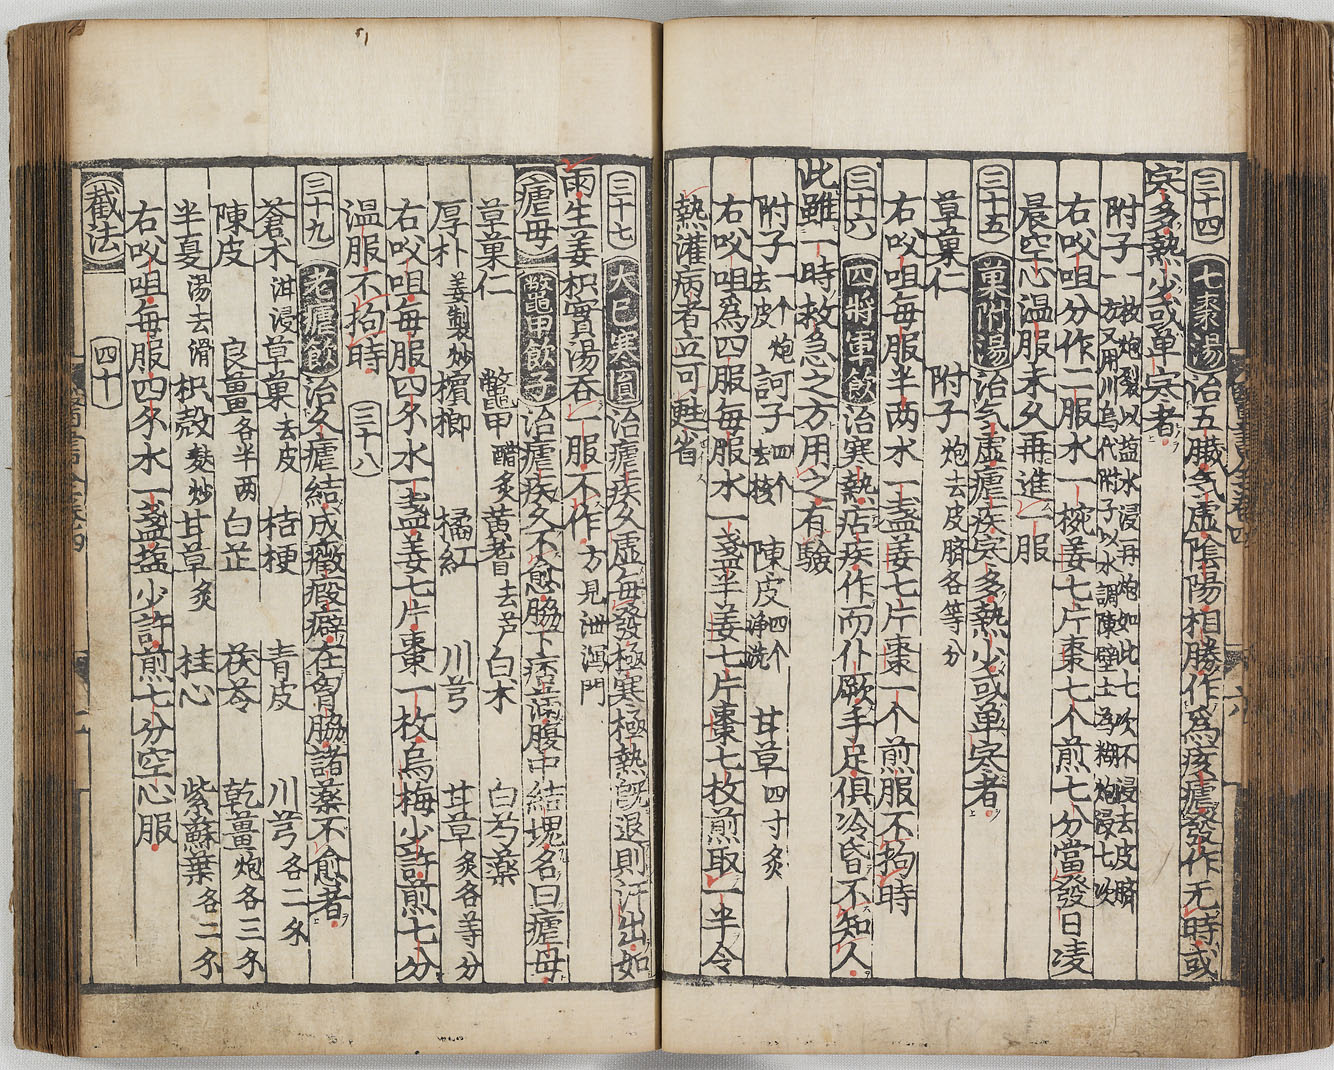 三十四 七棗湯 治五臟気虛陰陽相勝作爲痎瘧發作无時或
寒多熱少或單寒者
附子一枚炮裂以盐水浸再炮如此七次不浸去皮臍
方又用川烏代附子以水調陳壁土為糊炮浸七次
右㕮咀分作二服水一椀姜七片棗七个煎七分當發日凌
晨空心温服未久再進一服
三十五 菓附湯 治気虛瘧疾寒多熱少或單寒者
草菓仁 附子炮去皮臍各等分
右㕮咀每服半两水一盞姜七片棗一个煎服不拘時
三十六 四將軍飲 治寒熱痁疾作而仆厥手足俱冷昏不知人
此雖一時救急之方用之有驗
附子一个炮去皮 訶子四个去核 陳皮四个净洗 甘草四寸炙
右㕮咀爲四服每服水一盞半姜七片棗七枚煎取一半令
熱灌病者立可甦省
三十七 大已寒圓 治瘧疾久虛每發極寒極熱旣退則汗出如
雨生姜枳實湯吞一服不作方見泄瀉門
瘧母 鱉甲飲子 治瘧疾久不愈脇下痞滿腹中結塊名曰瘧母
草菓仁 鱉甲醋炙 黃耆去芦 白朮 白芍藥
厚朴姜製炒 檳榔 橘紅 川芎 甘草炙各等分
右㕮咀每服四分水一盞姜七片棗一枚烏梅少許煎七分
温服不拘時 三十八
三十九 老瘧飲 治久瘧結成癥瘕癖在胷脇諸藥不愈者
蒼朮泔浸 草菓去皮 桔梗 青皮 川芎各二分
陳皮 良薑各半两 白芷 茯苓 乾薑炮各三分
半夏湯去滑 枳殼麩炒 甘草炙 桂心 紫蘇葉各二分
右㕮咀每服四分水一盞盐少許煎七分空心服
截法 四十